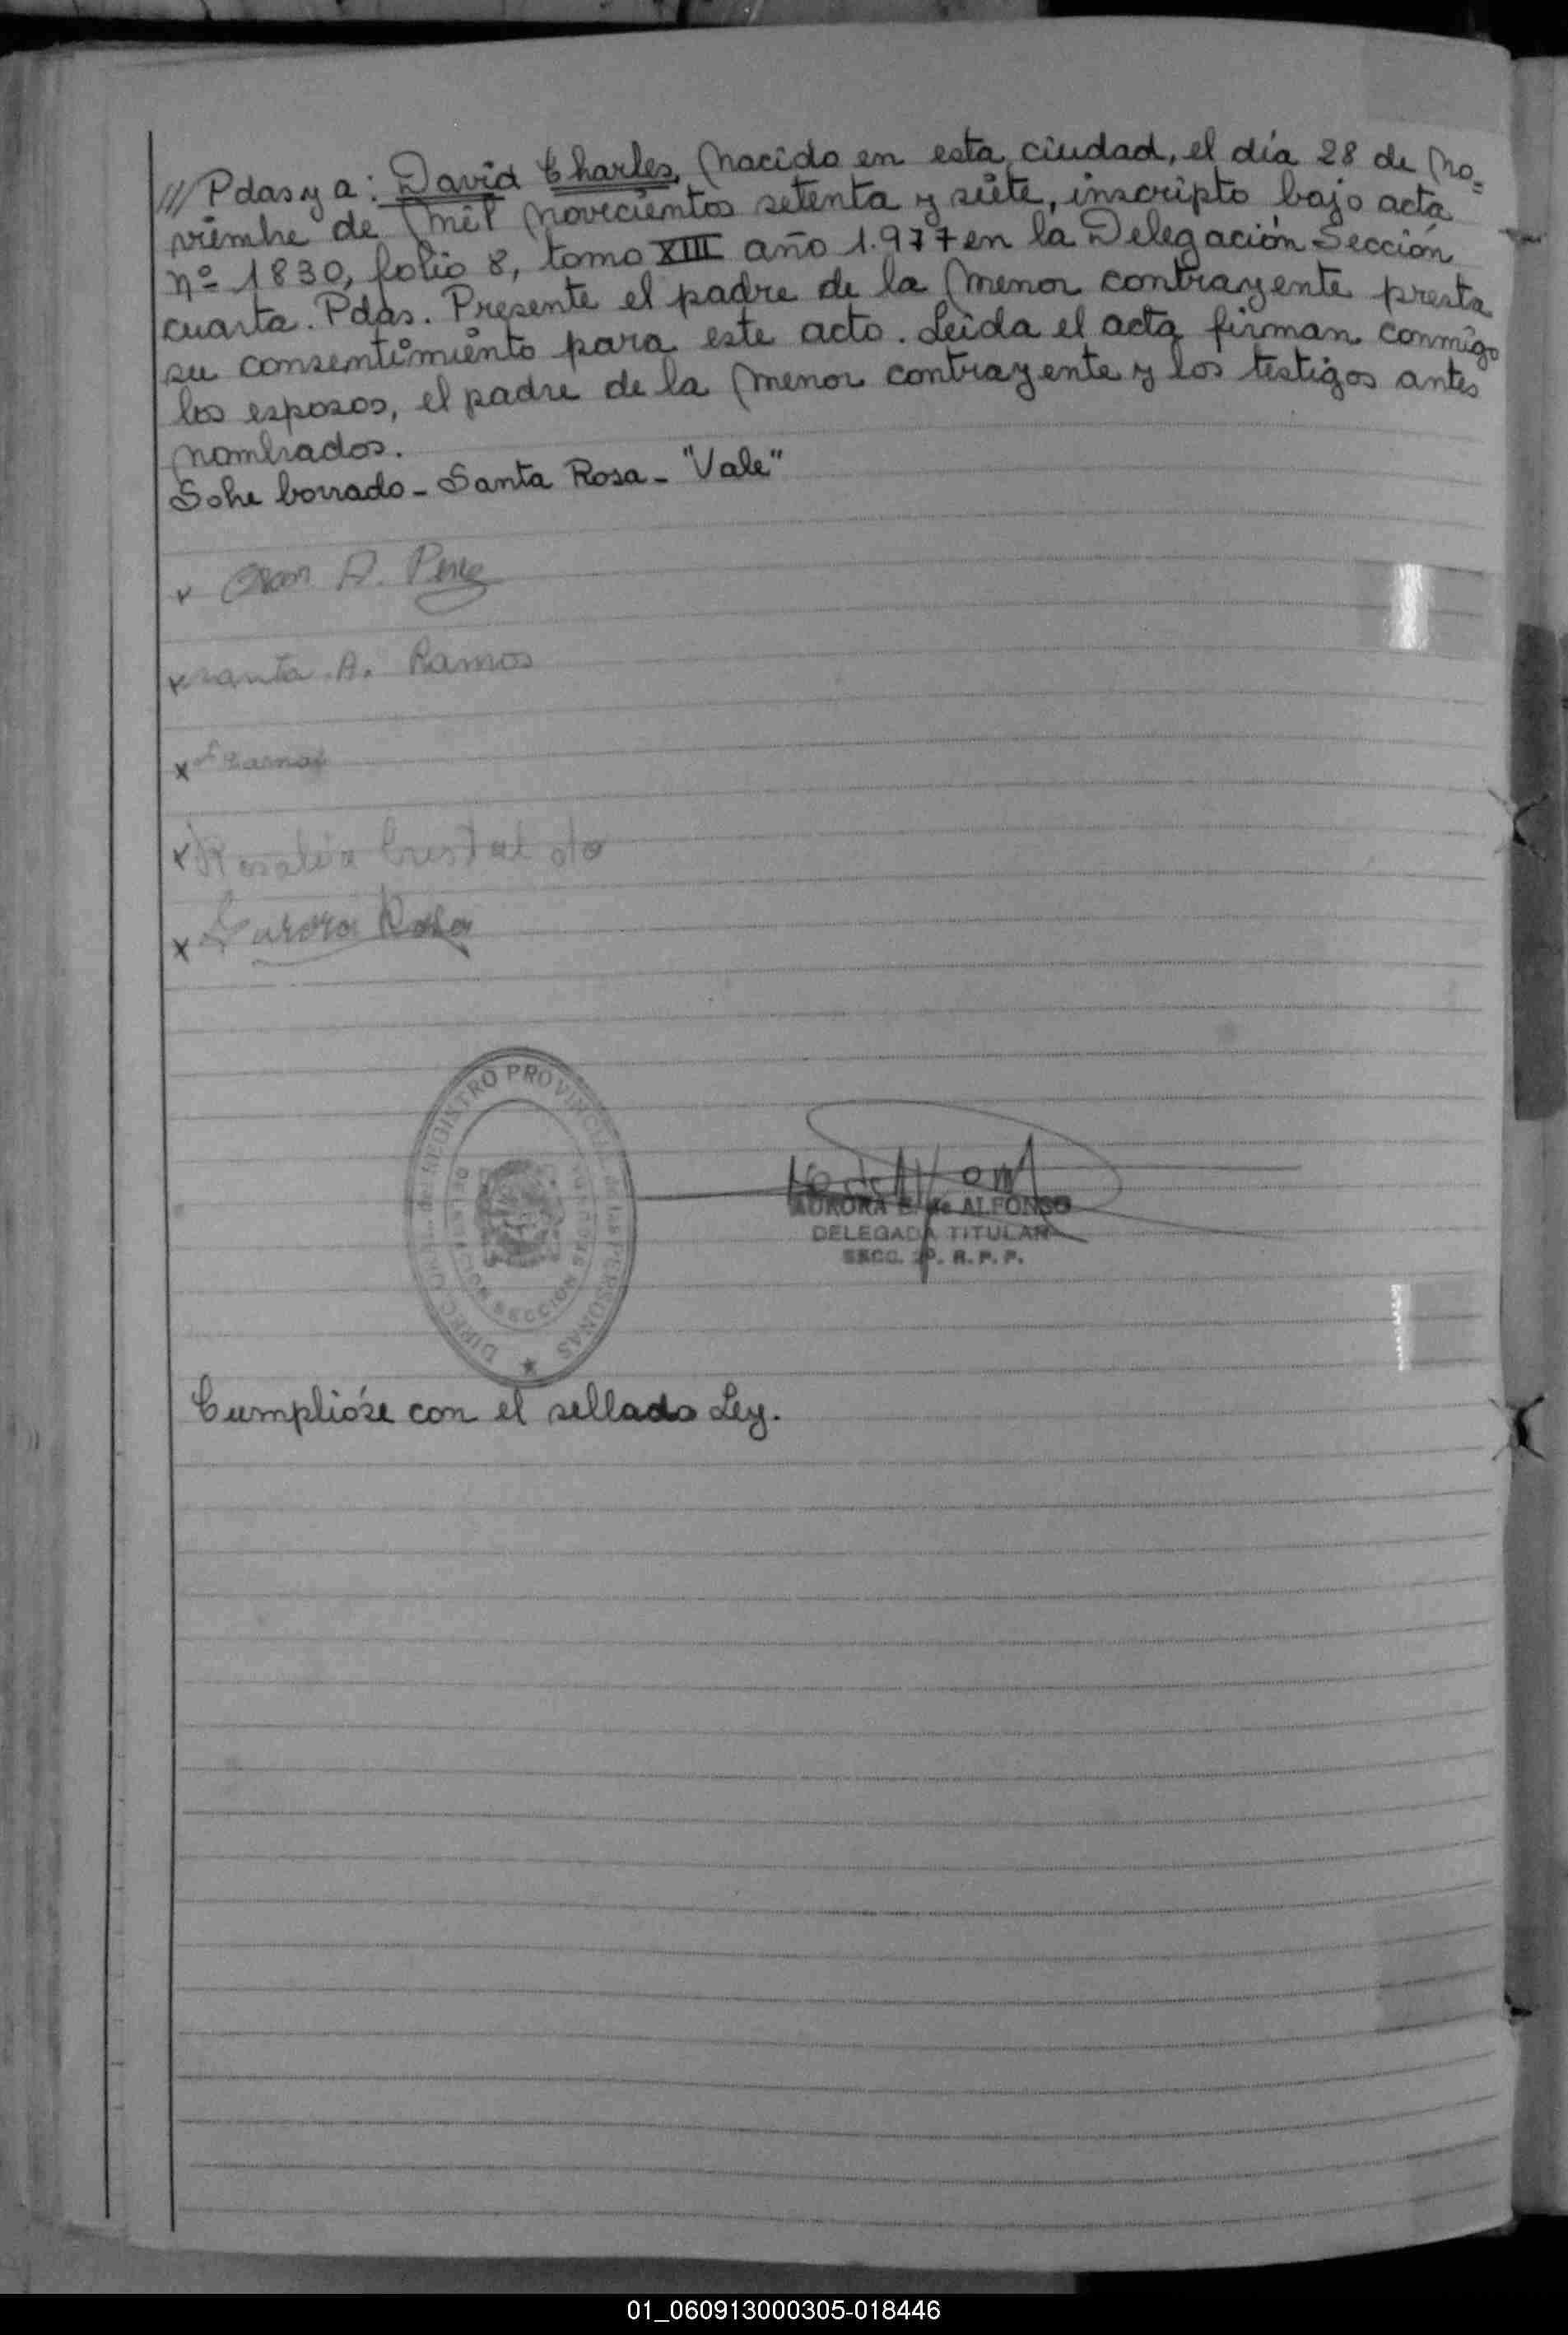 /// Pdas. y a: David Charles, nacido en esta ciudad, el día 28 de no=
viembre de mil novecientos setenta y siete, inscripto bajo acta
nº 1830, folio 8, tomo XIII año 1.977 en la Delegación Sección
cuarta. Pdas. Presente el padre de la menor contrayente presta
su consentimiento para este acto. Leída el acta firman conmigo
los esposos, el padre de la menor contrayente y los testigos antes
nombrados.
Sobre borrado - Santa Rosa - "Vale"
x A. Perez
x Santa A. Ramos
x
x Rosalia Cristaldo
x Aurora
REGISTRO PROVINCIAL de las PERSONAS
SECCION
AURORA E. de ALFONSO
DELEGADA TITULAR
SECC. R. P. P.
Cumplióse con el sellado Ley.
01_060913000305-018446